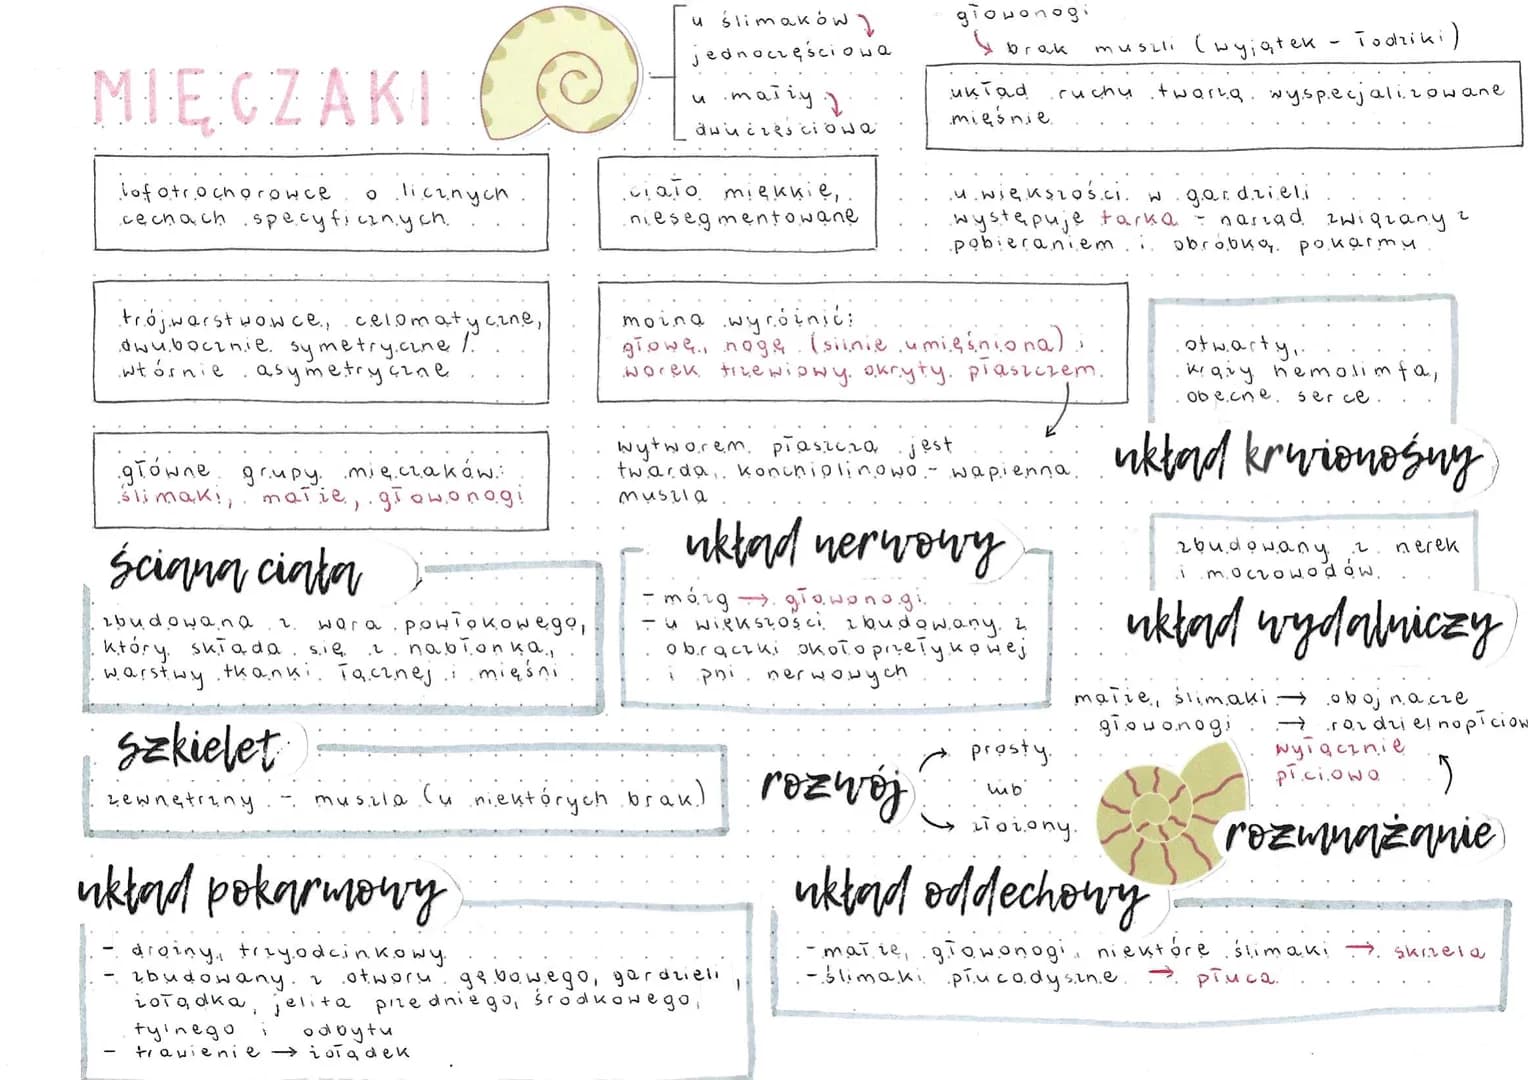 MIĘCZAKI
u ślimaków
jednoczęściowa
u małży
dwuczęściowa
głowonogi
brak muszli (wyjątek - łodziki)
układ ruchu tworzą wyspecjalizowane
mięśnie
lofotrochorowce o licznych
cechach specyficznych
ciało miękkie,
niesegmentowane
u większości w gardzieli
występuje tarka - narząd związany z
pobieraniem i obróbką pokarmu
trójwarstwowce, celomatyczne,
dwubocznie symetryczne /
wtórnie asymetryczne
można wyróżnić:
głowę, nogę (silnie umięśniona) i
worek trzewiowy okryty płaszczem
otwarty,
krąży hemolimfa,
obecne serce
układ krwionośny
główne grupy mięczaków:
ślimaki, małże, głowonogi
wytworem płaszcza jest
twarda, konchiolinowo - wapienna
muszla
ściana ciała
zbudowana z wora powłokowego,
który składa się z nabłonka,
warstwy tkanki łącznej i mięśni
układ nerwowy
- mózg → głowonogi
- u większości zbudowany z
obrączki okołoprzełykowej
i pni nerwowych
zbudowany z nerek
i moczowodów
układ wydalniczy
małże, ślimaki → obojnacze
głowonogi → rozdzielnopłciow
wyłącznie
płciowo
rozmnażanie
szkielet
zewnętrzny - muszla (u niektórych brak)
rozwój
prosty
lub
złożony
układ pokarmowy
- drożny, trzyodcinkowy
- zbudowany z otworu gębowego, gardzieli,
żołądka, jelita przedniego, środkowego,
tylnego i odbytu
- trawienie → żołądek
układ oddechowy
- małże, głowonogi, niektóre ślimaki → skrzela
- ślimaki płucodyszne → płuca